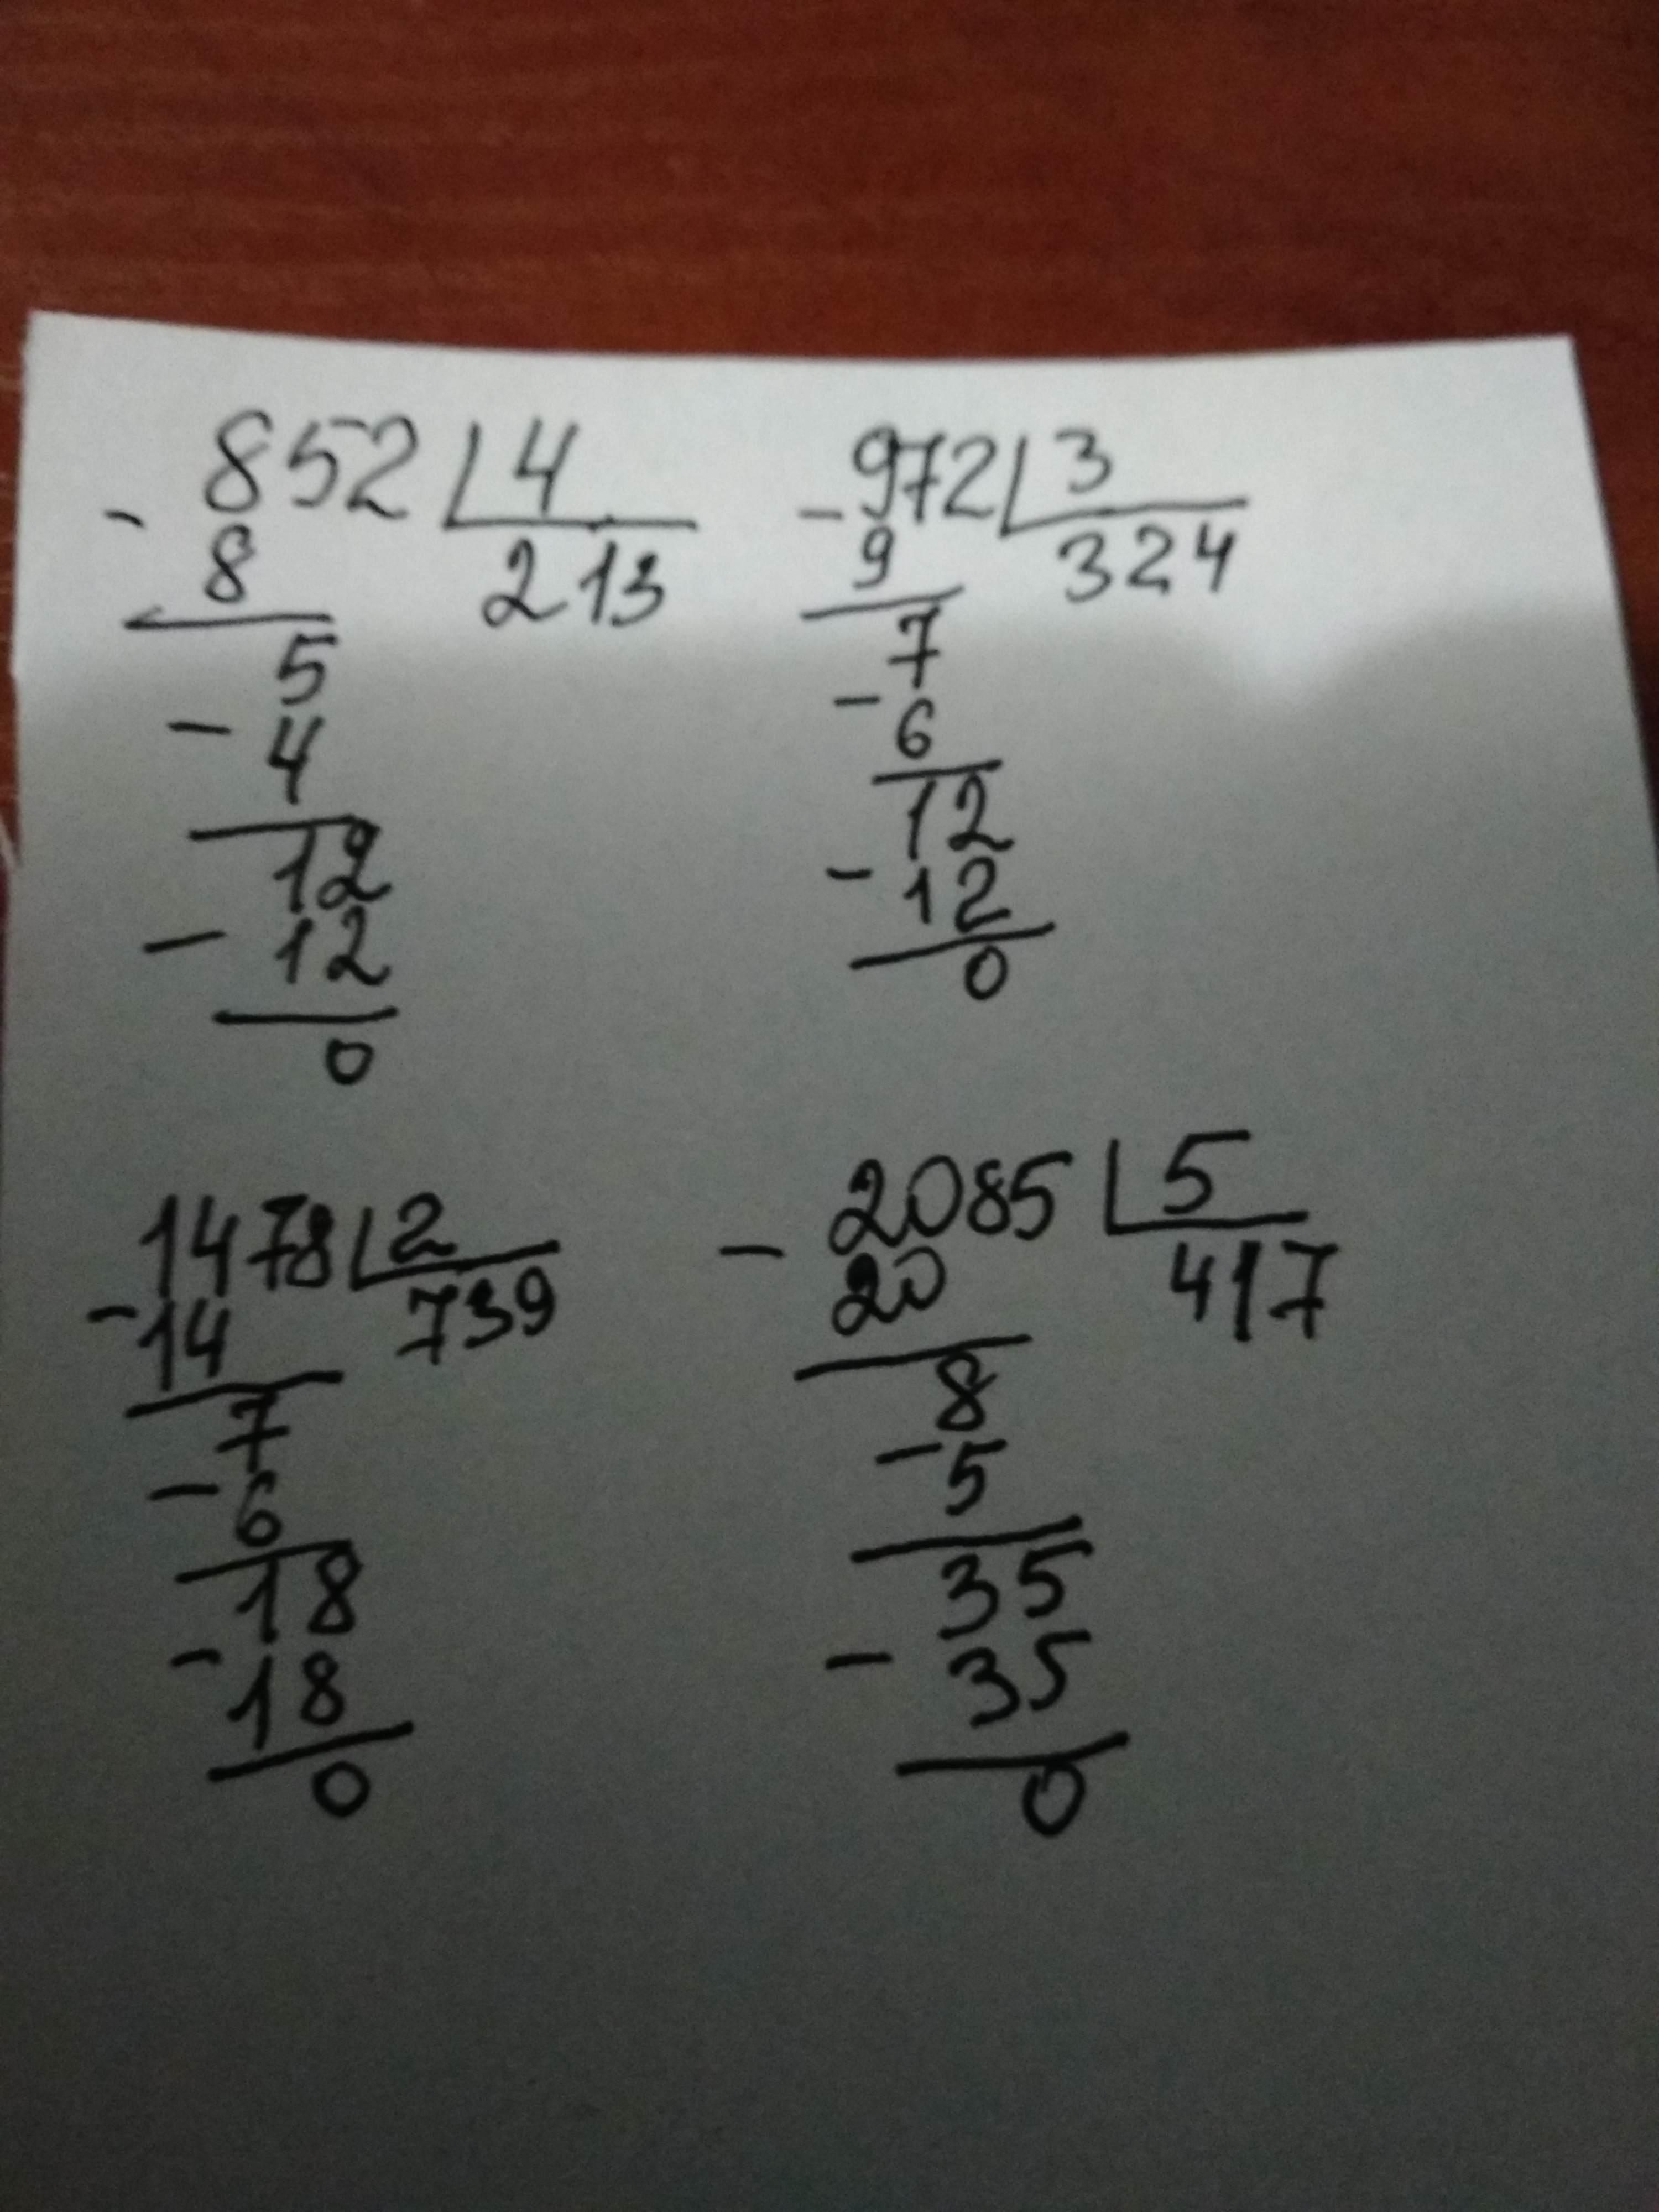 852 4
- 8 213
5
- 4
12
- 12
0
972 3
- 9 324
7
- 6
12
- 12
0
1478 2
- 14 739
7
- 6
18
- 18
0
2085 5
- 20 417
8
- 5
35
- 35
0